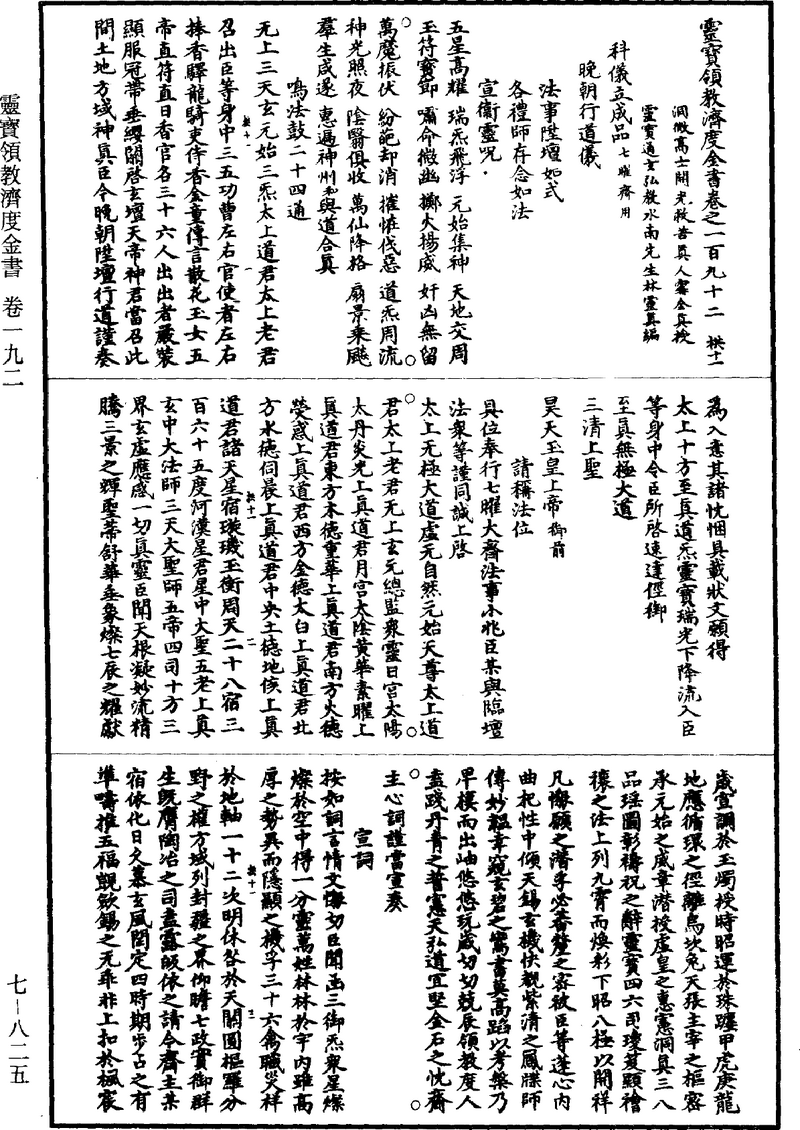 靈寶領教濟度金書卷之一百九十二 拱十一
洞微高士開光救苦真人甯全真授
靈寶通玄弘教水南先生林靈真編
科儀立成品 七曜齋用
晚朝行道儀
法事陞壇如式
各禮師存念如法
宣衛靈呪
五星高耀 瑞炁飛浮 元始集神 天地交周
玉符寶節 嘯命徵幽 擲火揚威 奸凶無留
萬魔振伏 紛葩却消 摧怪伐惡 道炁周流
神光照夜 陰翳俱收 萬仙降格 扇景乘飈
羣生咸遂 惠遍神州 與道合真
鳴法鼓二十四通
无上三天玄元始三炁太上道君太上老君
召出臣等身中三五功曹左右官使者左右
捧香驛龍騎吏侍香金童傳言散花玉女五
帝直符直日香官各三十六人出出者嚴裝
顯服冠帶垂纓關啓玄壇天帝神君當召此
間土地方域神真臣今晚朝陞壇行道謹奏
為入意其諸忱悃具載狀文願得
太上十方至真道炁靈寶瑞光下降流入臣
等身中令臣所啓速達徑御
至真無極大道
三清上聖
昊天玉皇上帝御前
請稱法位
具位奉行七曜大齋法事小兆臣某與臨壇
法衆等謹同誠上啓
太上无極大道虛无自然元始天尊太上道
君太上老君无上玄元總監衆靈日宮太陽
太丹炎光上真道君月宮太陰黃華素曜上
真道君東方木德重華上真道君南方火德
熒惑上真道君西方金德太白上真道君北
方水德伺晨上真道君中央土德地侯上真
道君諸天星宿璇璣玉衡周天二十八宿三
百六十五度河漢星君星中大聖五老上真
玄中大法師三天大聖師五帝四司十方三
界玄虛應感一切真靈臣聞天根凝妙流精
騰三景之輝聖蒂舒華垂象燦七辰之耀獻
歲宣調於玉燭授時昭運於珠躔甲虎庚龍
地應循環之徑離烏坎兔天張主宰之樞密
承元始之威章潛授虛皇之惠憲洞真三八
品瑤圖彰禱祝之辭靈寶四六司瓊笈顯禬
禳之法上列九霄而煥彩下昭八極以開祥
凡懷願之潛孚必蕃釐之密被臣等蓬心內
曲杞性中傾天錫玄機快覩紫清之鳳牒師
傳妙韞幸窺玄碧之鸞書莫高蹈以考槃乃
早樸而出岫悠悠玩歲切切兢辰領教度人
盍踐丹青之誓憲天弘道宜堅金石之忱齋
主心詞謹當宣奏
宣詞
按如詞言情文懷切臣聞函三御炁衆星燦
燦於空中得一分靈萬姓林林於宇內雖高
厚之勢異而隱顯之機孚三十六禽職災祥
於地軸一十二次明休咎於天關圖樞羅分
野之權方域列封疆之界仰瞻七政實御群
生既膺陶冶之司盍露皈依之請今齋主某
宿依化日久慕玄風閏定四時期步占之有
準疇推五福覬欽錫之无乖非上扣於楓宸
靈寶領教濟度金書 卷一九二
七—八二五